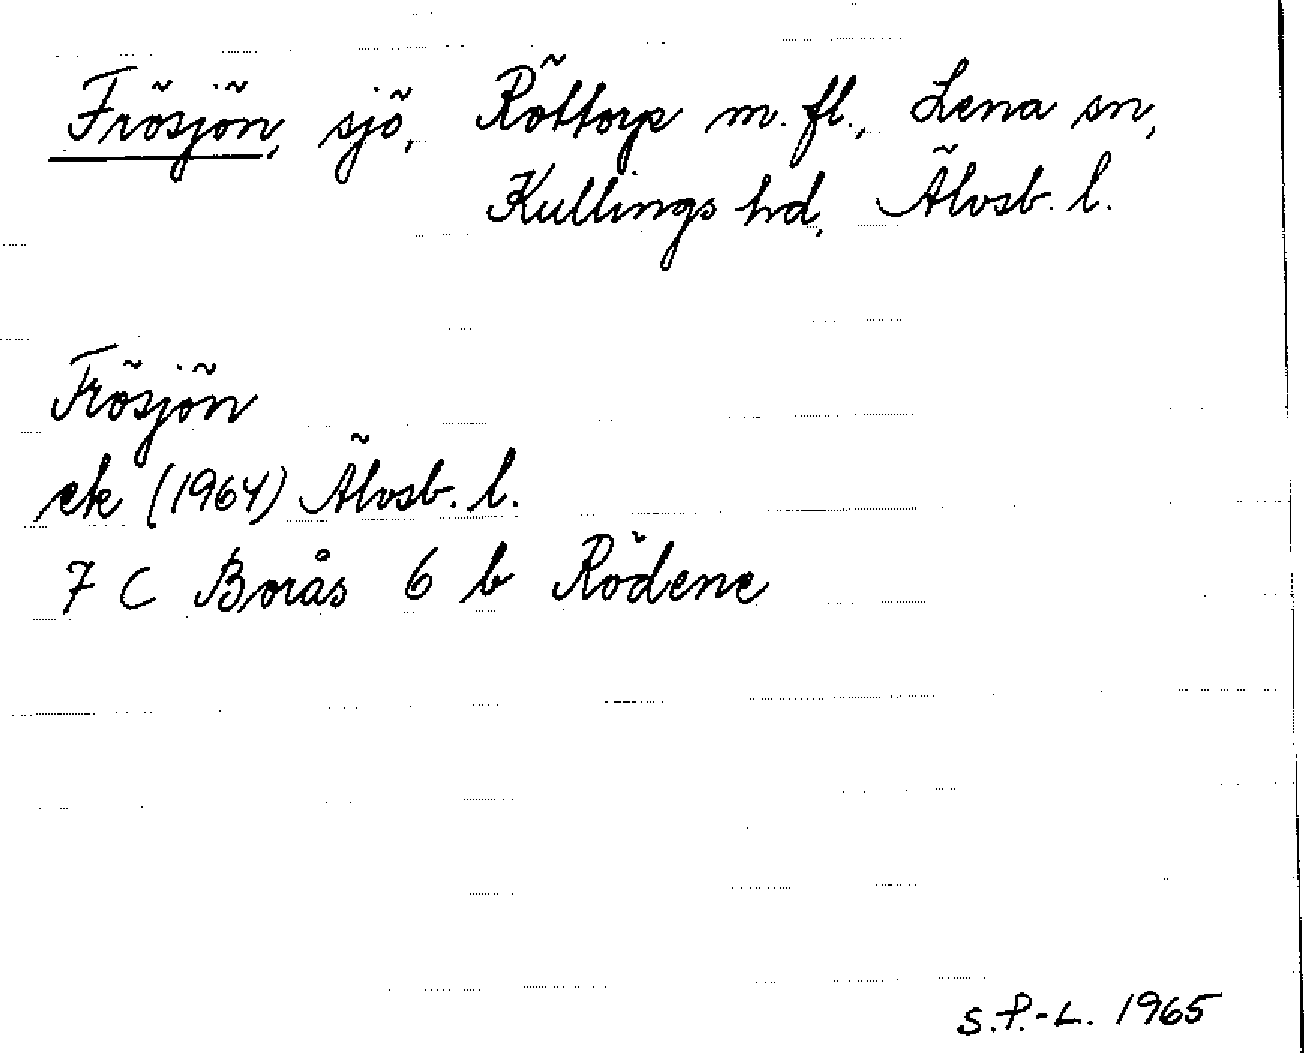 Frösjön, sjö, Röttorp m. fl., Lena sn,
Kullings hd, Älvsb. l.
Frösjön
ek (1964) Älvsb. l.
7 C Borås 6 b Rödene
S.P.-L. 1965